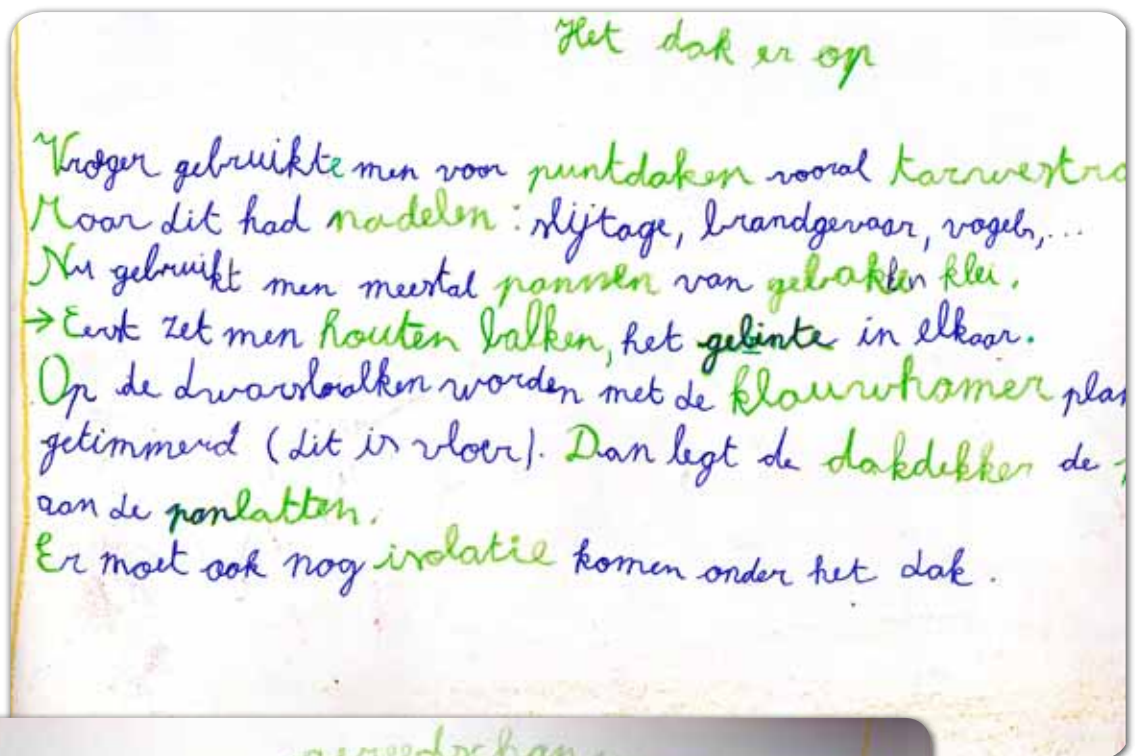 Het dak er op
Vroeger gebruikte men voor puntdaken vooral
Maar dit had nadelen : slijtage, brandgevaar, vogels,...
Nu gebruikt men meestal pannen van gebakken klei.
→ Eerst zet men houten balken, het gebinte in elkaar.
Op de dwarsbalken worden met de klauwhamer
getimmerd (dit is vloer). Dan legt de dakdekker de
aan de panlatten.
Er moet ook nog isolatie komen onder het dak.